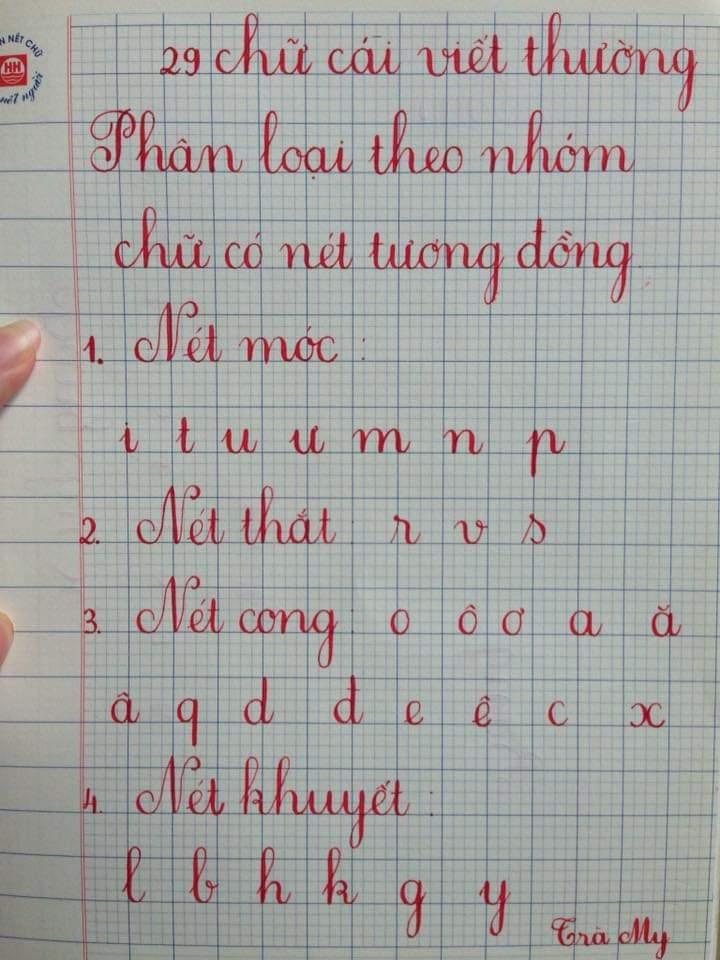 N NÉT CHỮ
HH
NẾT NGƯỜI
29 chữ cái viết thường
Phân loại theo nhóm
chữ có nét tương đồng
1. Nét móc :
i t u ư m n p
2. Nét thắt : r v s
3. Nét cong : o ô ơ a ă
â q d đ e ê c x
4. Nét khuyết :
l b h k g y
Trà My